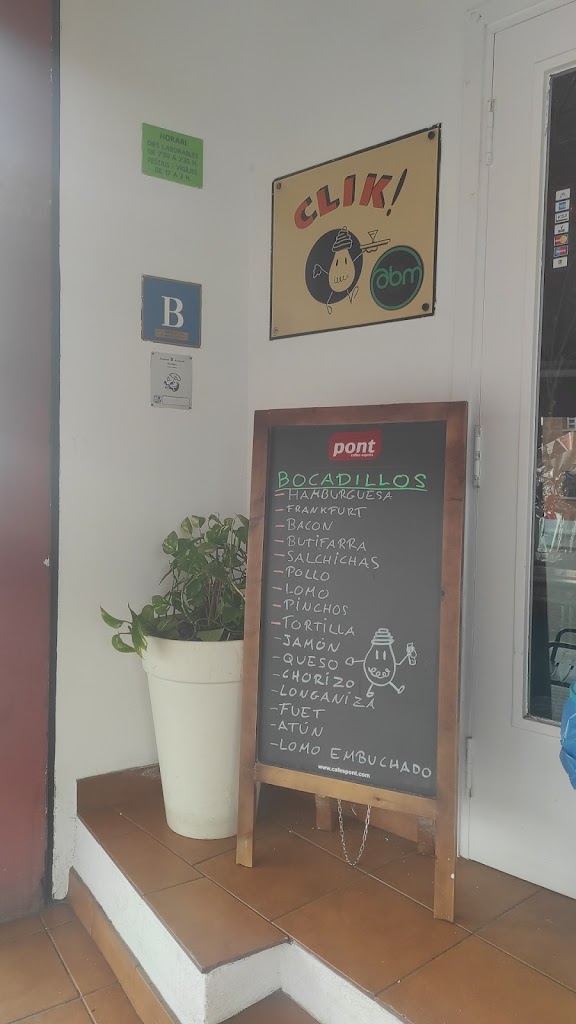 HORARI
DIES LABORABLES
FESTIUS - VIGILIES
CLIK!
abm
B
pont
cafès expres
BOCADILLOS
- HAMBURGUESA
- FRANKFURT
- BACON
- BUTIFARRA
- SALCHICHAS
- POLLO
- LOMO
- PINCHOS
- TORTILLA
- JAMÓN
- QUESO
- CHORIZO
- LONGANIZA
- FUET
- ATÚN
- LOMO EMBUCHADO
www.cafespont.com